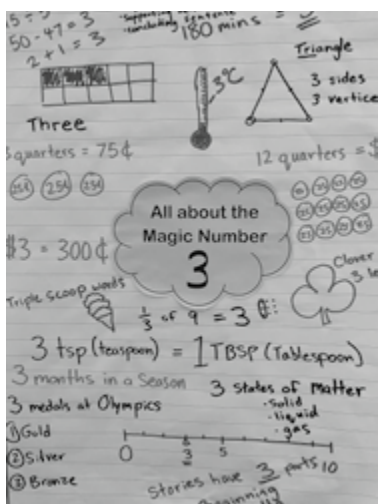 50 - 47 = 3
2 + 1 = 3
concluding sentence
180 mins =
Triangle
3 sides
3 vertice
3°C
Three
3 quarters = 75¢
25¢ 25¢ 25¢
12 quarters = $
All about the
Magic Number
3
$3 = 300¢
Triple scoop
Clover
3 le
1/3 of 9 = 3
3 tsp (teaspoon) = 1 TBSP (Tablespoon)
3 months in a Season
3 States of Matter
• Solid
• liquid
• gas
3 medals at Olympics
① Gold
② Silver
③ Bronze
0 3 5 10
Stories have 3 parts
Beginning